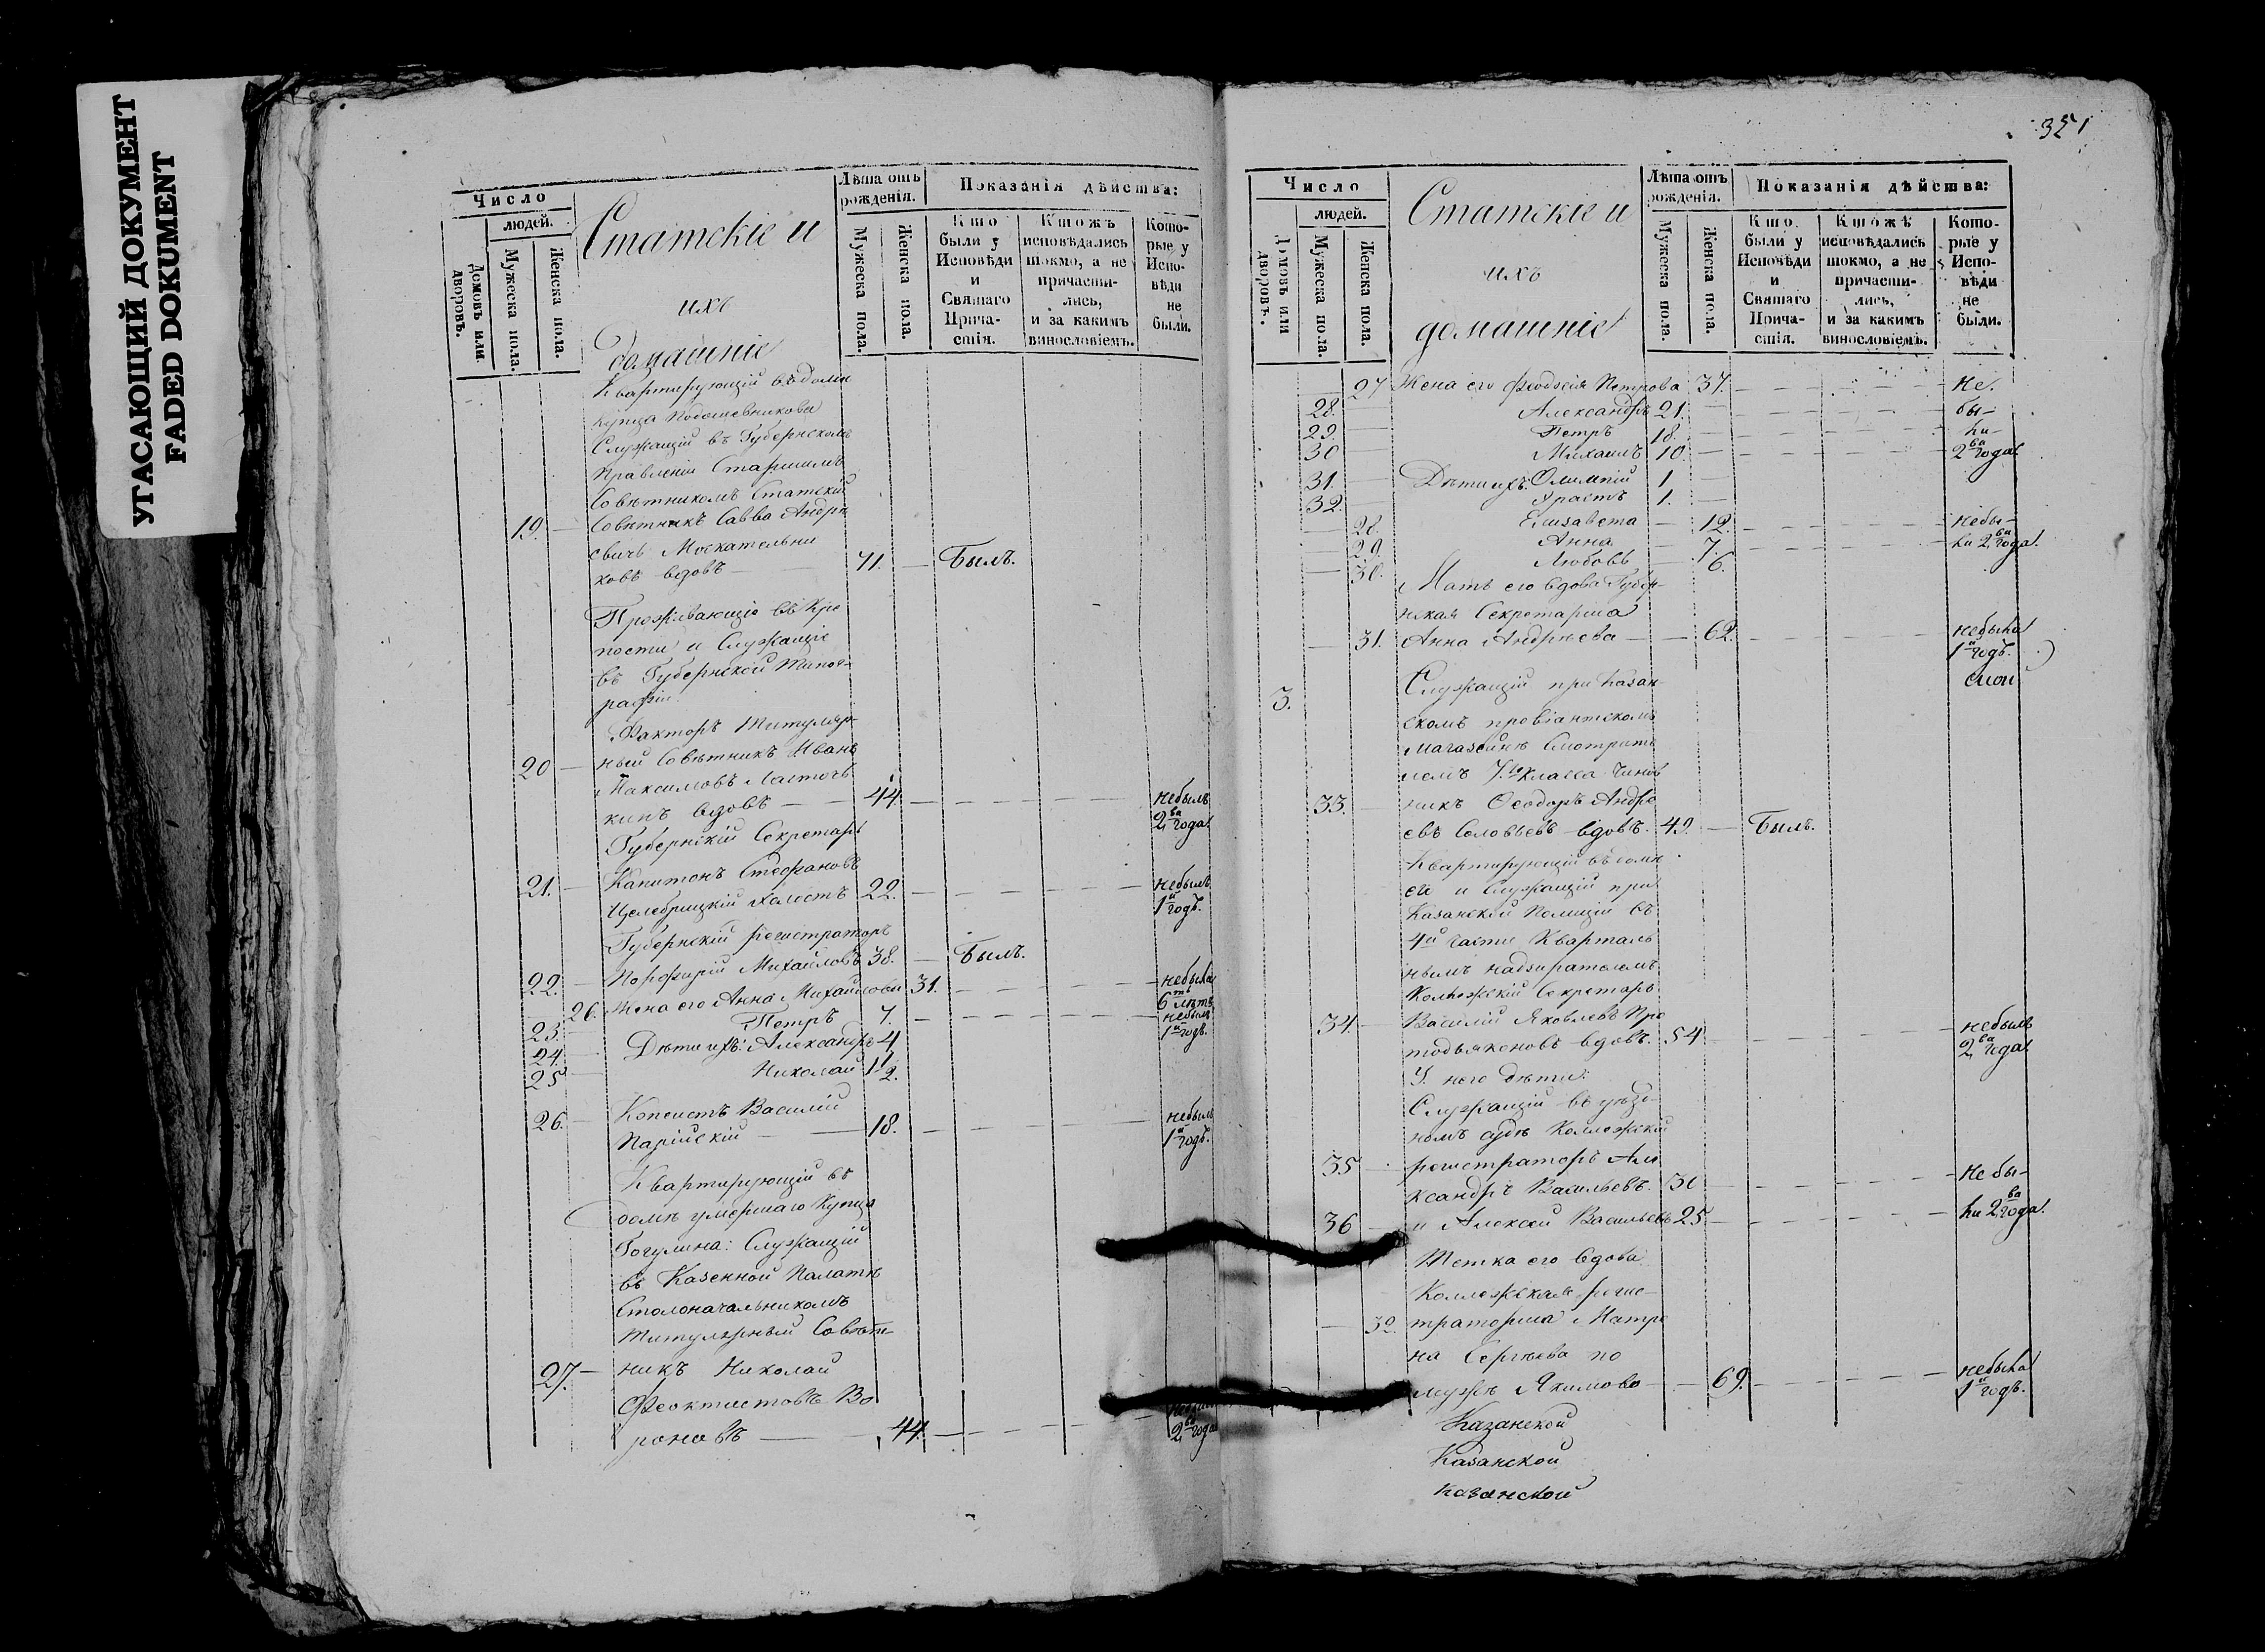 УГАСАЮЩИЙ ДОКУМЕНТ
FADED DOKUMENT
Число
людей.
Домовъ или дворовъ.
Мужеска пола.
Женска пола.
Статскіе и
ихъ
домашніе
Лѣта отъ рожденія.
Мужеска пола.
Женска пола.
Показанія дѣйства:
Кто были у Исповѣди и Святаго Прича- стія.
Ктожъ исповѣдались токмо, а не причасти- лись, и за какимъ винословіемъ.
Кото- рые у Испо- вѣди не были.
Квартирующій въ домѣ
купца Подошевникова
Служащій въ Губернскомъ
Правленіи Старшимъ
Совѣтникомъ Статскій
19. — Совѣтникъ Савва Андре
евичь Москательни
ковъ вдовъ — 71. — Былъ.
Проживающіе въ Кре
пости и Служащіе
въ Губернской Типог-
рафіи.
Факторъ Титуляр-
20 — ный Совѣтникъ Иванъ
Максимовъ Ласточ
кинъ вдовъ — 44. — небылъ
2ва года.
Губернскій Секретарь
21. — Капитонъ Стефановъ
Целебрицкій холостъ 22. — небылъ
1й годъ.
Губернскій регистраторъ
22. — Порфирій Михайловъ 38. — Былъ.
26. Жена его Анна Михайлова 31. — небыла
6ть лѣтъ
23. Петръ 7. — небылъ
1й годъ.
24. Дѣти ихъ: Александръ 4
25 Николай 1 1/2.
26. — Копеистъ Василій
Парійскій — 18. — небылъ
1й годъ.
Квартирующій въ
домѣ умершаго Купца
Гогулина: Служащій
въ Казенной Палатѣ
Столоначальникомъ
Титулярный Совѣт-
27. — никъ Николай
Феоктистовъ Во
роновъ — 44. —
2ва года
351
Число
людей.
Домовъ или дворовъ.
Мужеска пола.
Женска пола.
Статскіе и
ихъ
домашніе
Лѣта отъ рожденія.
Мужеска пола.
Женска пола.
Показанія дѣйства:
Кто были у Исповѣди и Святаго Прича- стія.
Ктожъ исповѣдались токмо, а не причасти- лись, и за какимъ винословіемъ.
Кото- рые у Испо- вѣди не были.
27 Жена его Феодосія Петрова 37. — не.
28. — Александръ 21. — бы-
29. — Петръ 18. — ли-
30 — Михаилъ 10. — 2ва года
31. — Дѣти ихъ: Олимпій 1 —
32. Ерастъ 1. —
28. Елизавета — 12 — небы-
29. Анна — 7. — ли 2ва года.
30. Любовь — 6.
Мать его вдова Губер-
нская Секретарша
31. Анна Андрѣева — 62. — небыла
1й годъ.
3. Служащій при Казан-
скомъ провіантскомъ
магазейнѣ Смотрите
лемъ 7.го класса Чинов
33. — никъ Ѳеодоръ Андре
евъ Соловьевъ вдовъ. 49. — Былъ.
Квартирующій въ домѣ
ей и Служащій при
Казанской Полиціи въ
4й части Кварталь
нымъ надзирателемъ
Колежскій Секретарь
34. — Василій Яковлевъ Про
тодьяконовъ вдовъ. 54 — небылъ
2ва года.
У него дѣти:
Служащій въ уѣзд-
номъ судѣ Коллежскій
35 регистраторъ Але
ксандръ Васильевъ. 30 — не бы-
36 — и Алексей Васильевъ 25 — ли 2ва года.
Тетка его вдова
Коллежская реги-
32. траторша Матре
на Сергѣева по
мужѣ Якимова — 69. — небыла
1й годъ.
Казанской
Казанской
Казанской